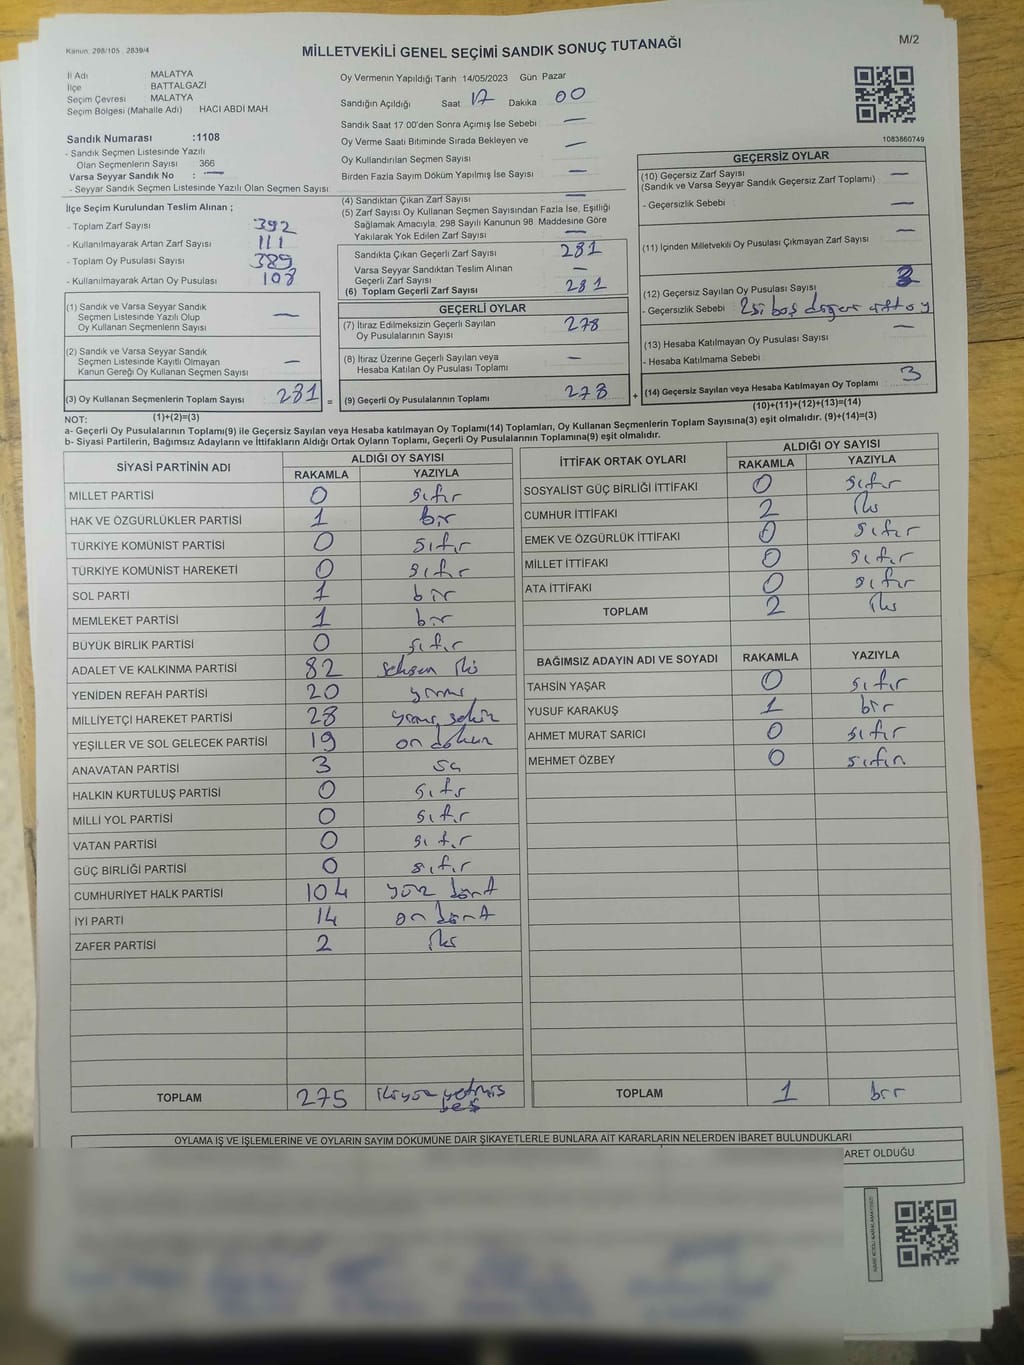 Kanun: 298/105, 2839/4
MİLLETVEKİLİ GENEL SEÇİMİ SANDIK SONUÇ TUTANAĞI
M/2
İl Adı MALATYA
İlçe BATTALGAZİ
Seçim Çevresi MALATYA
Seçim Bölgesi (Mahalle Adı) HACI ABDİ MAH
Sandık Numarası :1108
- Sandık Seçmen Listesinde Yazılı
Olan Seçmenlerin Sayısı 366
Varsa Seyyar Sandık No : —
- Seyyar Sandık Seçmen Listesinde Yazılı Olan Seçmen Sayısı
Oy Vermenin Yapıldığı Tarih 14/05/2023 Gün Pazar
Sandığın Açıldığı Saat 17 Dakika 00
Sandık Saat 17 00'den Sonra Açımış İse Sebebi —
Oy Verme Saati Bitiminde Sırada Bekleyen ve
Oy Kullandırılan Seçmen Sayısı —
Birden Fazla Sayım Döküm Yapılmış İse Sayısı —
1083860749
İlçe Seçim Kurulundan Teslim Alınan ;
- Toplam Zarf Sayısı 392
- Kullanılmayarak Artan Zarf Sayısı 111
- Toplam Oy Pusulası Sayısı 389
- Kullanılmayarak Artan Oy Pusulası 108
(1) Sandık ve Varsa Seyyar Sandık
Seçmen Listesinde Yazılı Olup
Oy Kullanan Seçmenlerin Sayısı —
(2) Sandık ve Varsa Seyyar Sandık
Seçmen Listesinde Kayıtlı Olmayan
Kanun Gereği Oy Kullanan Seçmen Sayısı —
(3) Oy Kullanan Seçmenlerin Toplam Sayısı 281 =
(4) Sandıktan Çıkan Zarf Sayısı —
(5) Zarf Sayısı Oy Kullanan Seçmen Sayısından Fazla İse, Eşitliği
Sağlamak Amacıyla, 298 Sayılı Kanunun 98. Maddesine Göre
Yakılarak Yok Edilen Zarf Sayısı —
Sandıkta Çıkan Geçerli Zarf Sayısı 281
Varsa Seyyar Sandıktan Teslim Alınan
Geçerli Zarf Sayısı —
(6) Toplam Geçerli Zarf Sayısı 281
GEÇERLİ OYLAR
(7) İtiraz Edilmeksizin Geçerli Sayılan
Oy Pusulalarının Sayısı 278
(8) İtiraz Üzerine Geçerli Sayılan veya
Hesaba Katılan Oy Pusulası Toplamı —
(9) Geçerli Oy Pusulalarının Toplamı 278 +
GEÇERSİZ OYLAR
(10) Geçersiz Zarf Sayısı
(Sandık ve Varsa Seyyar Sandık Geçersiz Zarf Toplamı) —
- Geçersizlik Sebebi —
(11) İçinden Milletvekili Oy Pusulası Çıkmayan Zarf Sayısı —
(12) Geçersiz Sayılan Oy Pusulası Sayısı 3
- Geçersizlik Sebebi 2si boş diğeri çift oy
(13) Hesaba Katılmayan Oy Pusulası Sayısı —
- Hesaba Katılmama Sebebi
(14) Geçersiz Sayılan veya Hesaba Katılmayan Oy Toplamı 3
NOT: (1)+(2)=(3) (10)+(11)+(12)+(13)=(14)
a- Geçerli Oy Pusulalarının Toplamı(9) ile Geçersiz Sayılan veya Hesaba katılmayan Oy Toplamı(14) Toplamları, Oy Kullanan Seçmenlerin Toplam Sayısına(3) eşit olmalıdır. (9)+(14)=(3)
b- Siyasi Partilerin, Bağımsız Adayların ve İttifakların Aldığı Ortak Oyların Toplamı, Geçerli Oy Pusulalarının Toplamına(9) eşit olmalıdır.
SİYASİ PARTİNİN ADI ALDIĞI OY SAYISI
RAKAMLA YAZIYLA
MİLLET PARTİSİ 0 sıfır
HAK VE ÖZGÜRLÜKLER PARTİSİ 1 bir
TÜRKİYE KOMÜNİST PARTİSİ 0 sıfır
TÜRKİYE KOMÜNİST HAREKETİ 0 sıfır
SOL PARTİ 1 bir
MEMLEKET PARTİSİ 1 bir
BÜYÜK BİRLİK PARTİSİ 0 sıfır
ADALET VE KALKINMA PARTİSİ 82 seksen iki
YENİDEN REFAH PARTİSİ 20 yirmi
MİLLİYETÇİ HAREKET PARTİSİ 28 yirmi sekiz
YEŞİLLER VE SOL GELECEK PARTİSİ 19 on dokuz
ANAVATAN PARTİSİ 3 üç
HALKIN KURTULUŞ PARTİSİ 0 sıfır
MİLLİ YOL PARTİSİ 0 sıfır
VATAN PARTİSİ 0 sıfır
GÜÇ BİRLİĞİ PARTİSİ 0 sıfır
CUMHURİYET HALK PARTİSİ 104 yüz dört
İYİ PARTİ 14 on dört
ZAFER PARTİSİ 2 iki
TOPLAM 275 ikiyüz yetmiş beş
İTTİFAK ORTAK OYLARI ALDIĞI OY SAYISI
RAKAMLA YAZIYLA
SOSYALİST GÜÇ BİRLİĞİ İTTİFAKI 0 sıfır
CUMHUR İTTİFAKI 2 iki
EMEK VE ÖZGÜRLÜK İTTİFAKI 0 sıfır
MİLLET İTTİFAKI 0 sıfır
ATA İTTİFAKI 0 sıfır
TOPLAM 2 iki
BAĞIMSIZ ADAYIN ADI VE SOYADI RAKAMLA YAZIYLA
TAHSİN YAŞAR 0 sıfır
YUSUF KARAKUŞ 1 bir
AHMET MURAT SARICI 0 sıfır
MEHMET ÖZBEY 0 sıfır
TOPLAM 1 bir
OYLAMA İŞ VE İŞLEMLERİNE VE OYLARIN SAYIM DÖKÜMÜNE DAİR ŞİKAYETLERLE BUNLARA AİT KARARLARIN NELERDEN İBARET BULUNDUKLARI
ARET OLDUĞU